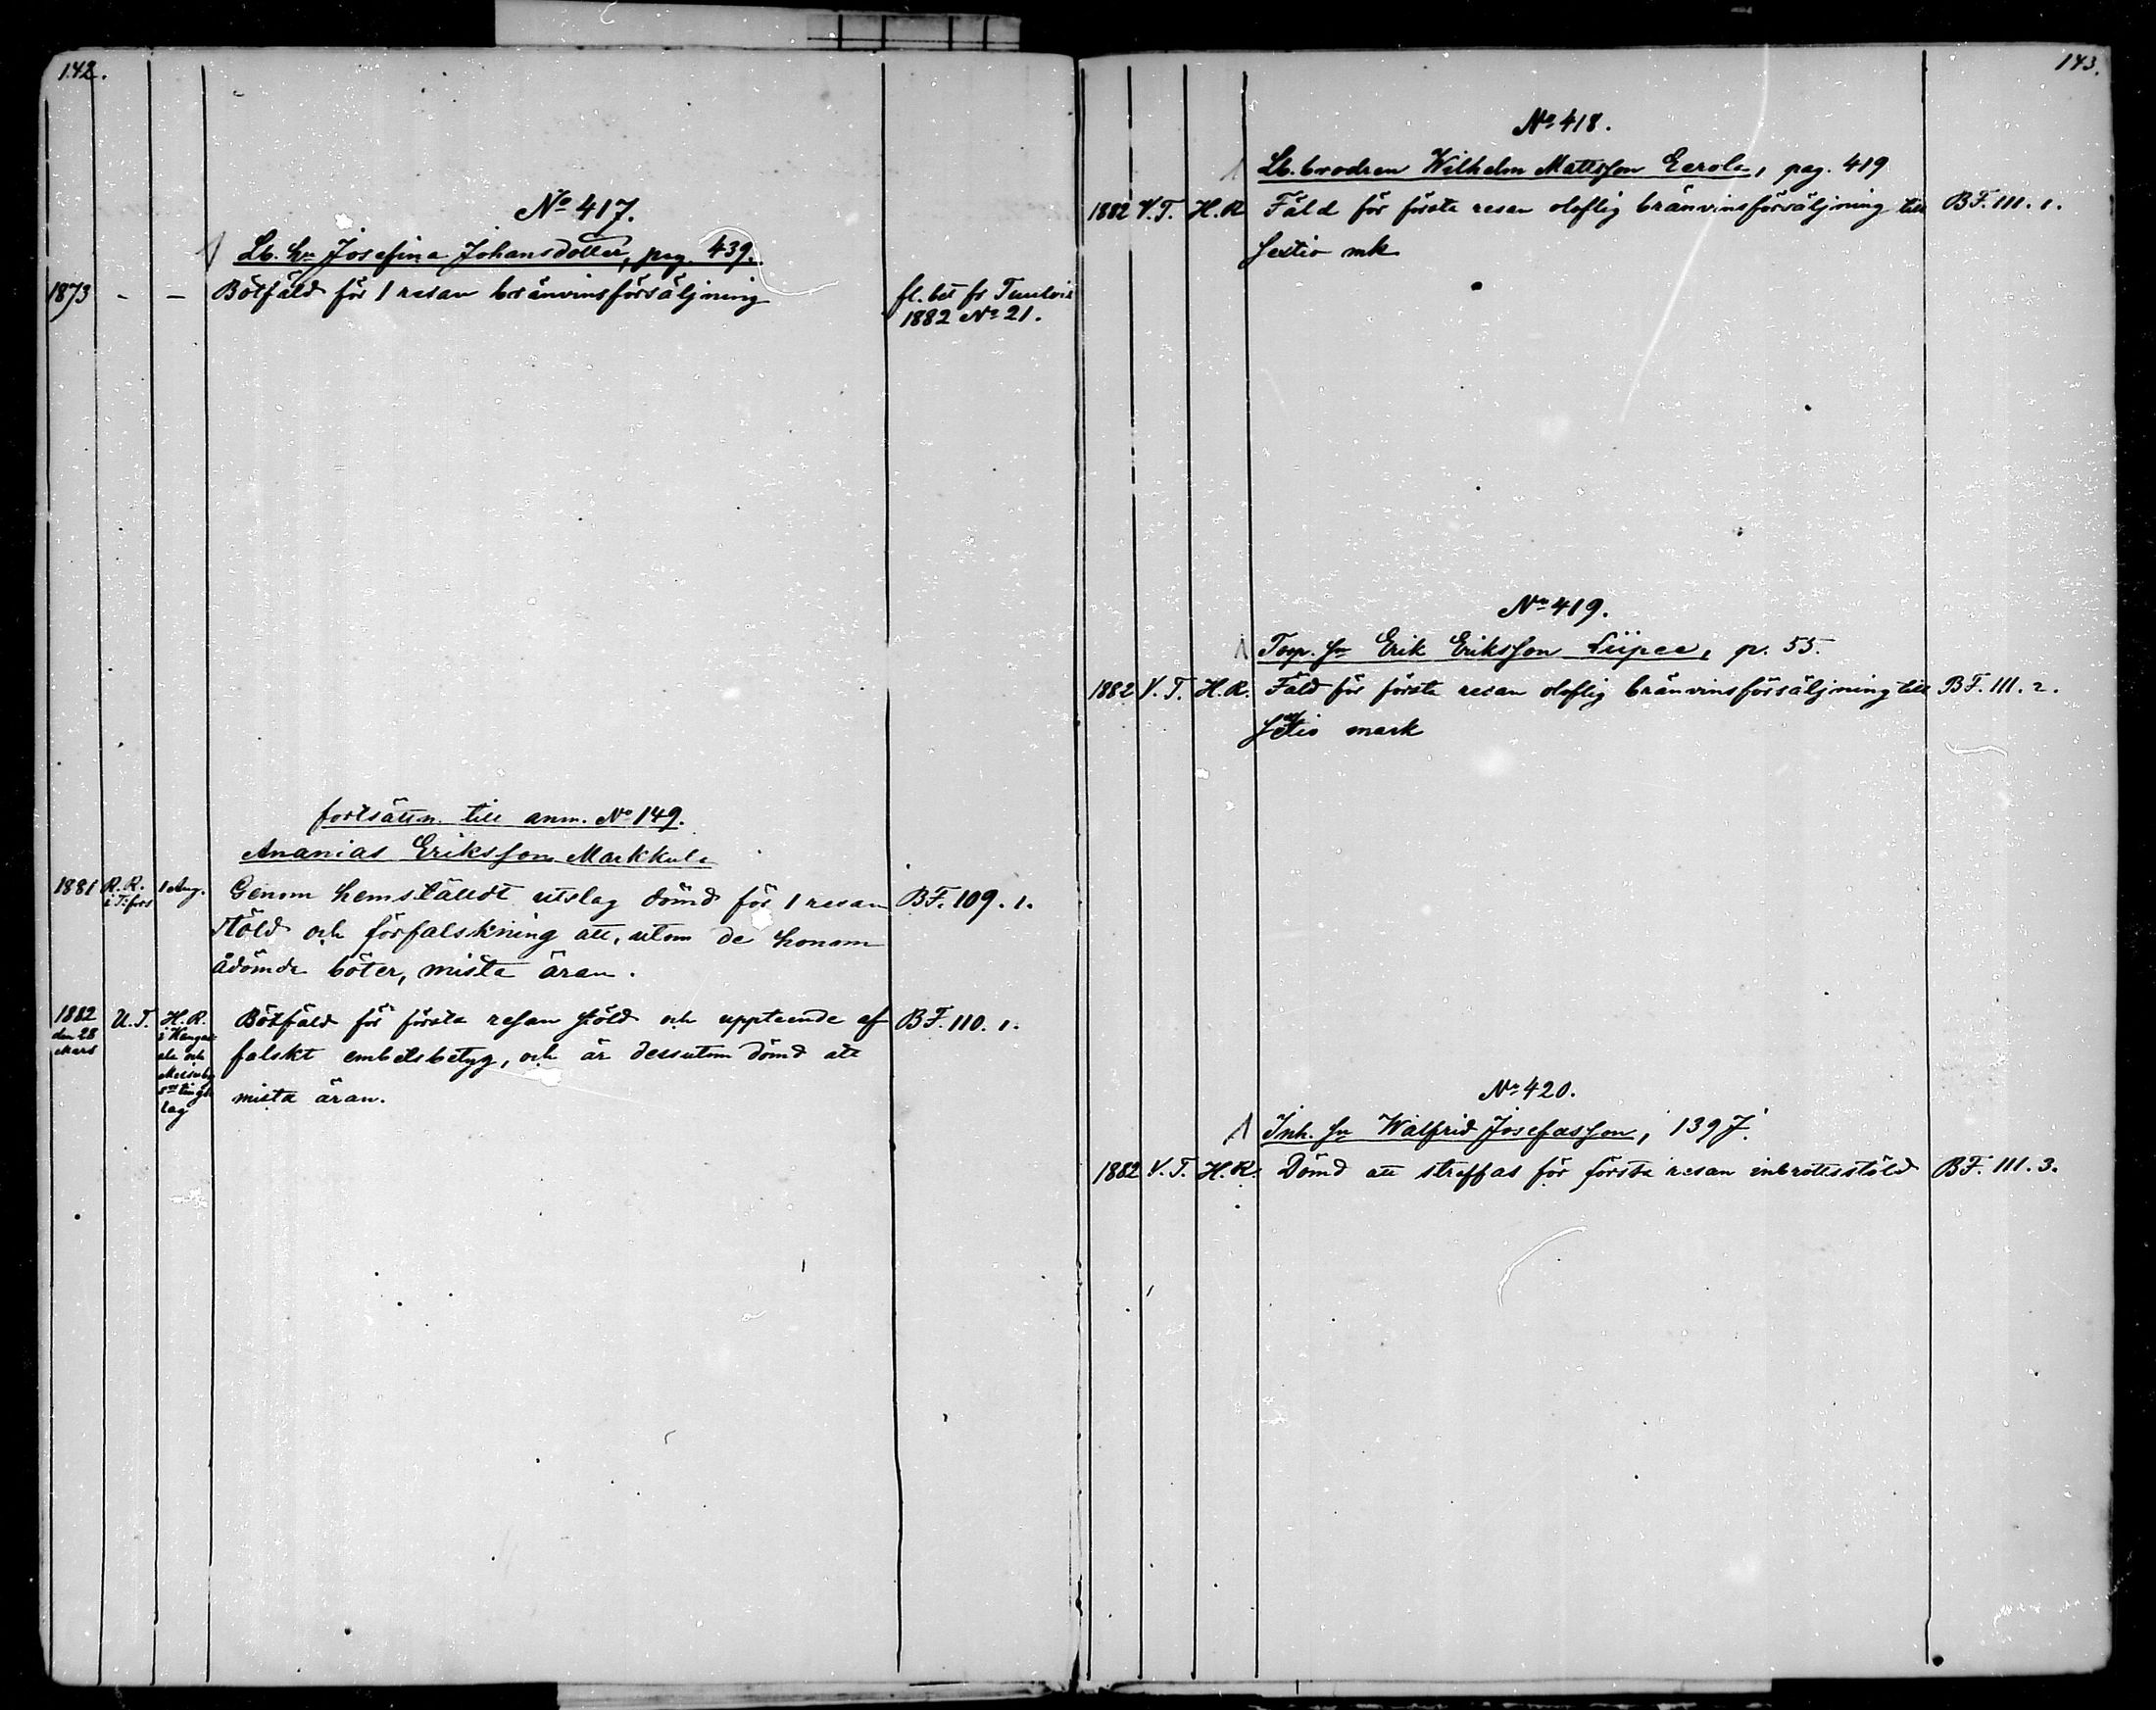 142.
No 417.
Lb. hu Josefina Johansdotter, pag. 439.
1873 - - Bötfäld för 1 resan bränvinsförsäljning
fl. bet fr
1882 No 21.
fortsättn. till anm. No 149.
Ananias Eriksson Markkula
1881 R. R. i T:fors 1 Aug. Genom hemställdt utslag dömd för 1 resan BF. 109. 1.
stöld och förfalskning att, utom de honom
ådömda böter, mista äran.
1882 den 28 Mars U. T. H. R. i Kangas ala och tings lag
Bötfäld för första resan stöld och uppteende af BF. 110. 1.
falskt embetsbetyg, och är dessutom dömd att
mista äran.
143.
No 418.
1 Lb. brodren Wilhelm Mattsson Eerola, pag. 419
1882 V. T. H. R Fäld för första resan oloflig bränvinsförsäljning till BF. 111. 1.
sextio mk
No 419.
1 Torp. sn Erik Eriksson Liipee, p. 55.
1882 V. T. H. R. Fäld för första resan oloflig bränvinsförsäljning till BF. 111. 2.
sextio mark
No 420.
1 Inh. sn Walfrid Josefasson, 1397.
1882 V. T. H. R. Dömd att straffas för första resan inbrottsstöld BF. 111. 3.